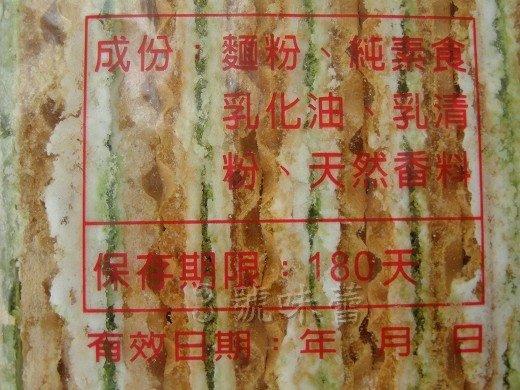 成份：麵粉、純素食
乳化油、乳清
粉、天然香料
保存期限：180天
號味蕾
有效日期：年 月 日